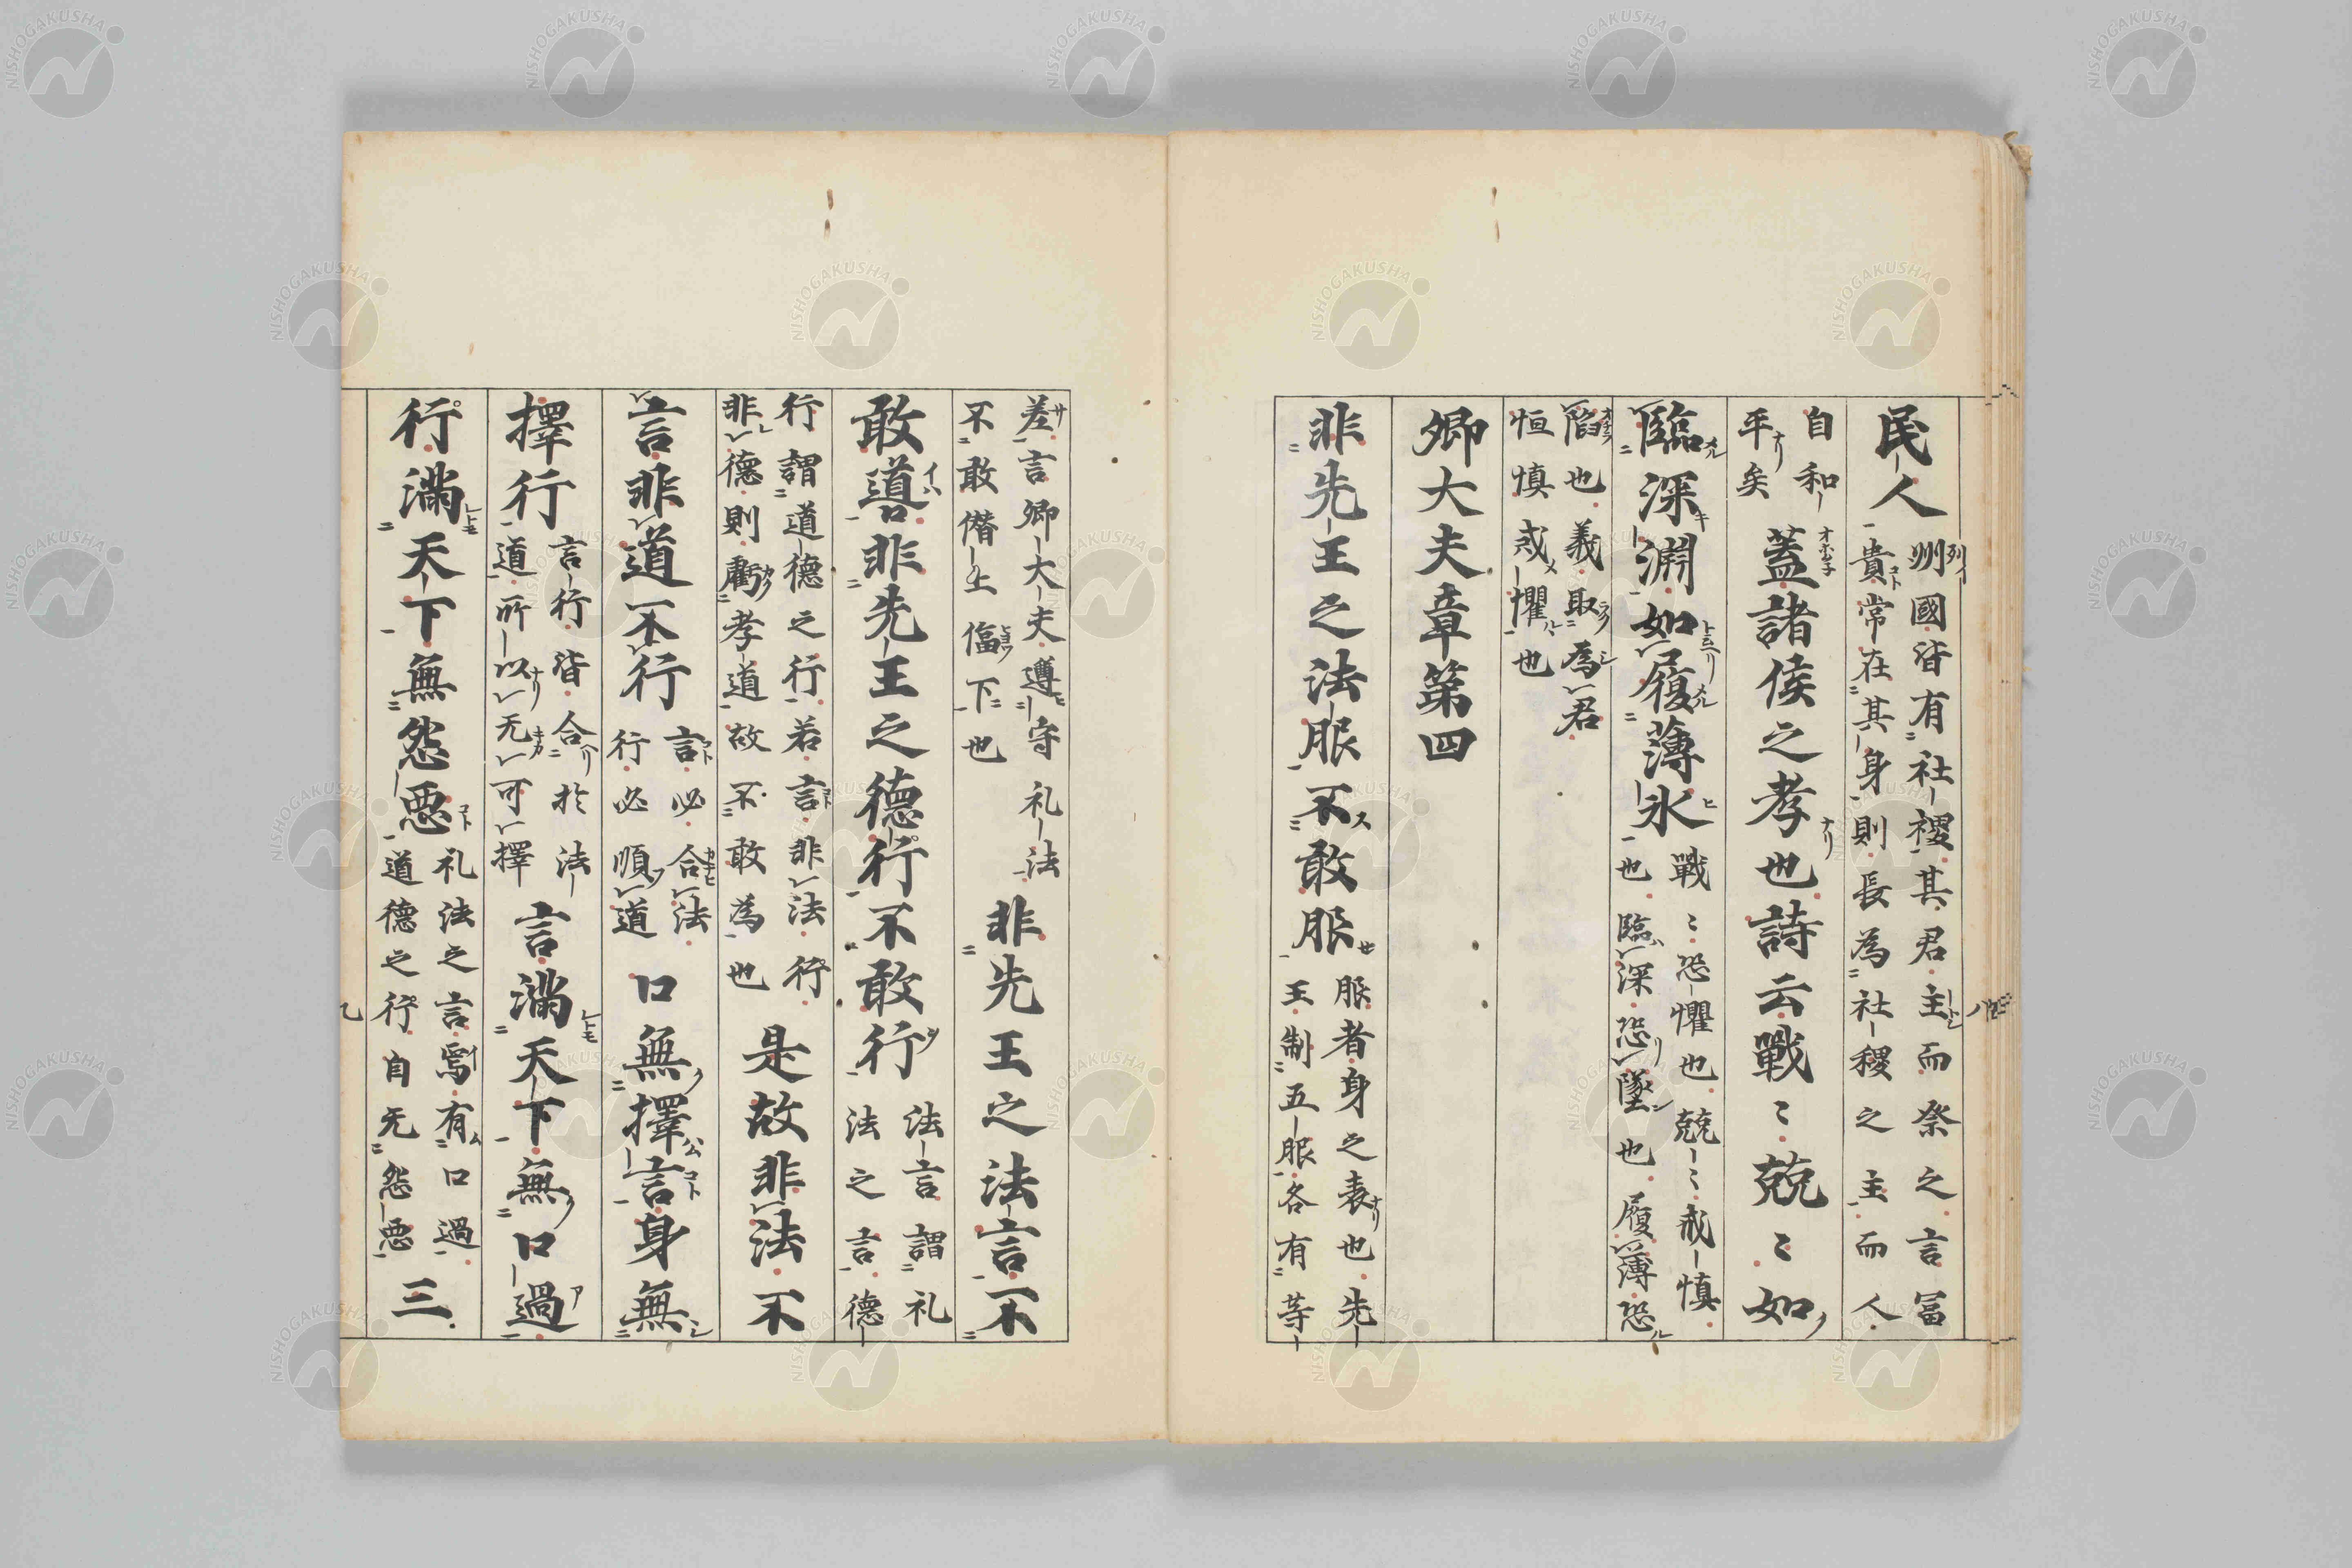 民人
州國皆有社稷其君主而祭之言冨
貴常在其身則長為社稷之主而人
自和
平矣
蓋諸侯之孝也詩云戰〻兢〻如
臨深淵如履薄氷
戰〻恐懼也兢〻戒慎
也臨深恐墜也履薄恐
陷也義取為君
恒慎戒懼也
卿大夫章第四
非先王之法服不敢服
服者身之表也先
王制五服各有等
差言卿大夫遵守礼法
不敢僣上偪下也
非先王之法言不
敢噵非先王之德行不敢行
法言謂礼
法之言德
行謂道德之行若言非法行
非德則虧孝道故不敢為也
是故非法不
言非道不行
言必合法
行必順道
口無擇言身無
擇行
言行皆合於法
道所以无可擇
言滿天下無口過
行滿天下無怨惡
礼法之言焉有口過
道德之行自无怨惡
三
NISHOGAKUSHA